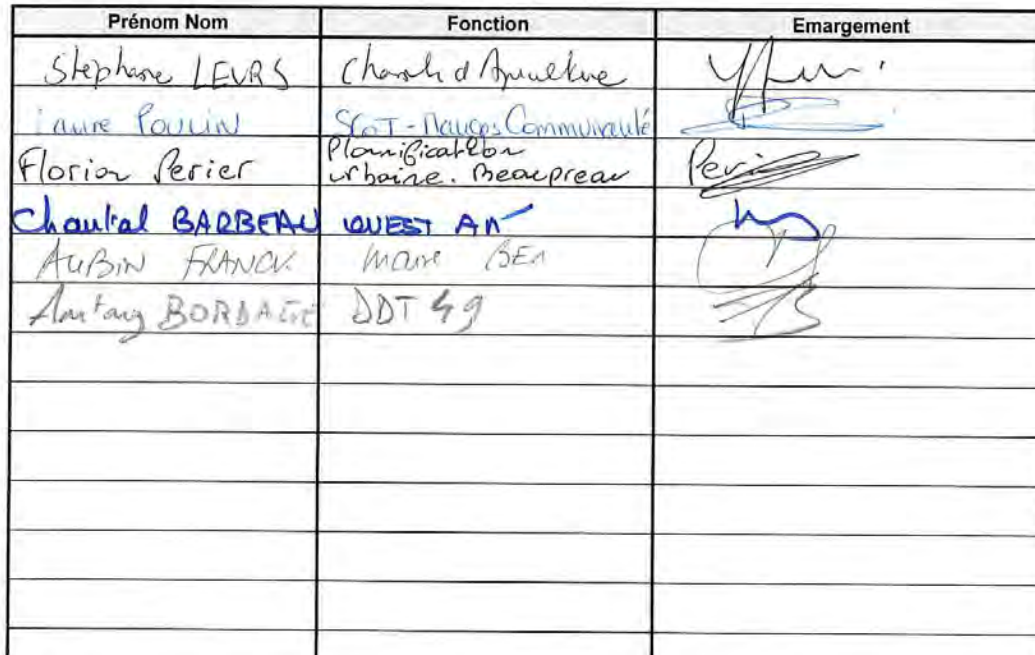 Prénom Nom Fonction Emargement
Stephane LEVRS Chamb d'Agriculture
Laure Poulin SCoT-Mauges Communauté
Planification
Florian Perier urbaine. Beaupreau Peri
Chantal BARBEAU OUEST AM
AUBIN FRANCK Maire BEM
Antony BORDAGE DDT 49